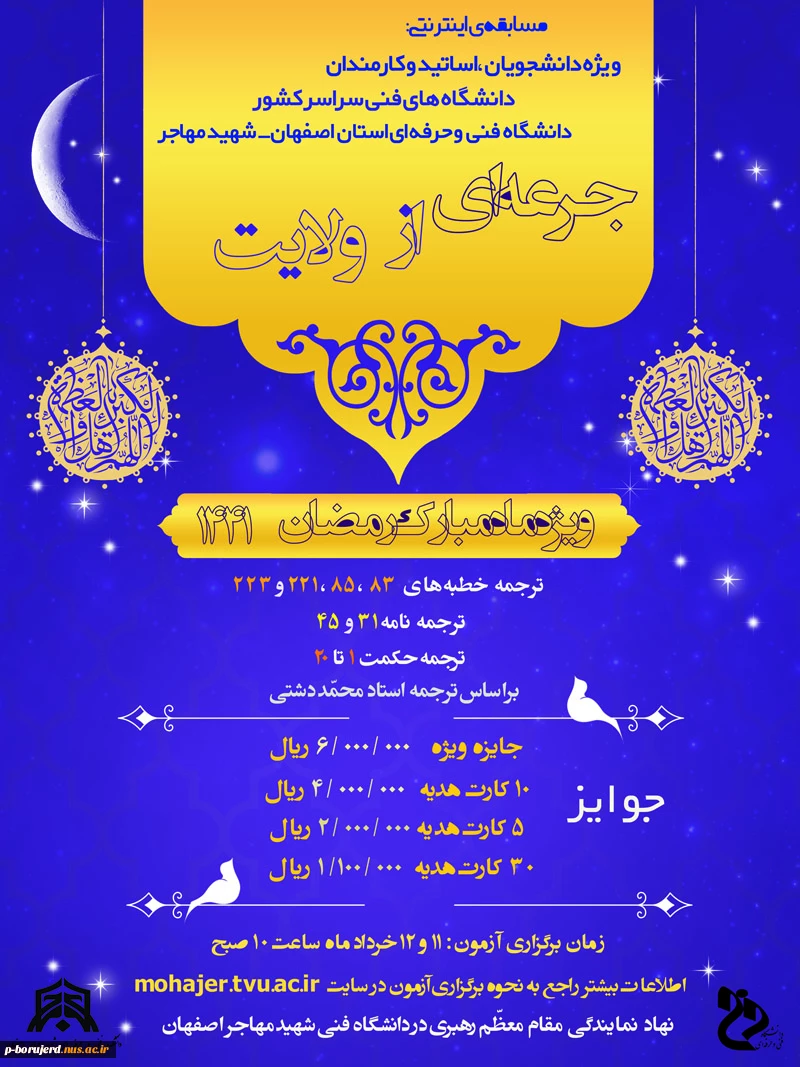 مسابقه‌ی اینترنتی:
ویژه دانشجویان ،اساتید و کارمندان
دانشگاه های فنی سراسر کشور
دانشگاه فنی و حرفه ای استان اصفهان_ شهید مهاجر
جرعه‌ای از ولایت
ویژه ماه مبارک رمضان ۱۴۴۱
ترجمه خطبه های ۸۳ ،۸۵ ،۲۲۱ و ۲۲۳
ترجمه نامه ۳۱ و ۴۵
ترجمه حکمت ۱ تا ۲۰
براساس ترجمه استاد محمّد دشتی
جوایز
جایزه ویژه ۶/۰۰۰/۰۰۰ ریال
۱۰ کارت هدیه ۴/۰۰۰/۰۰۰ ریال
۵ کارت هدیه ۲/۰۰۰/۰۰۰ ریال
۳۰ کارت هدیه ۱/۱۰۰/۰۰۰ ریال
زمان برگزاری آزمون: ۱۱ و ۱۲ خرداد ماه ساعت ۱۰ صبح
اطلاعات بیشتر راجع به نحوه برگزاری آزمون در سایت mohajer.tvu.ac.ir
نهاد نمایندگی مقام معظّم رهبری در دانشگاه فنی شهید مهاجر اصفهان
p-borujerd.nus.ac.ir